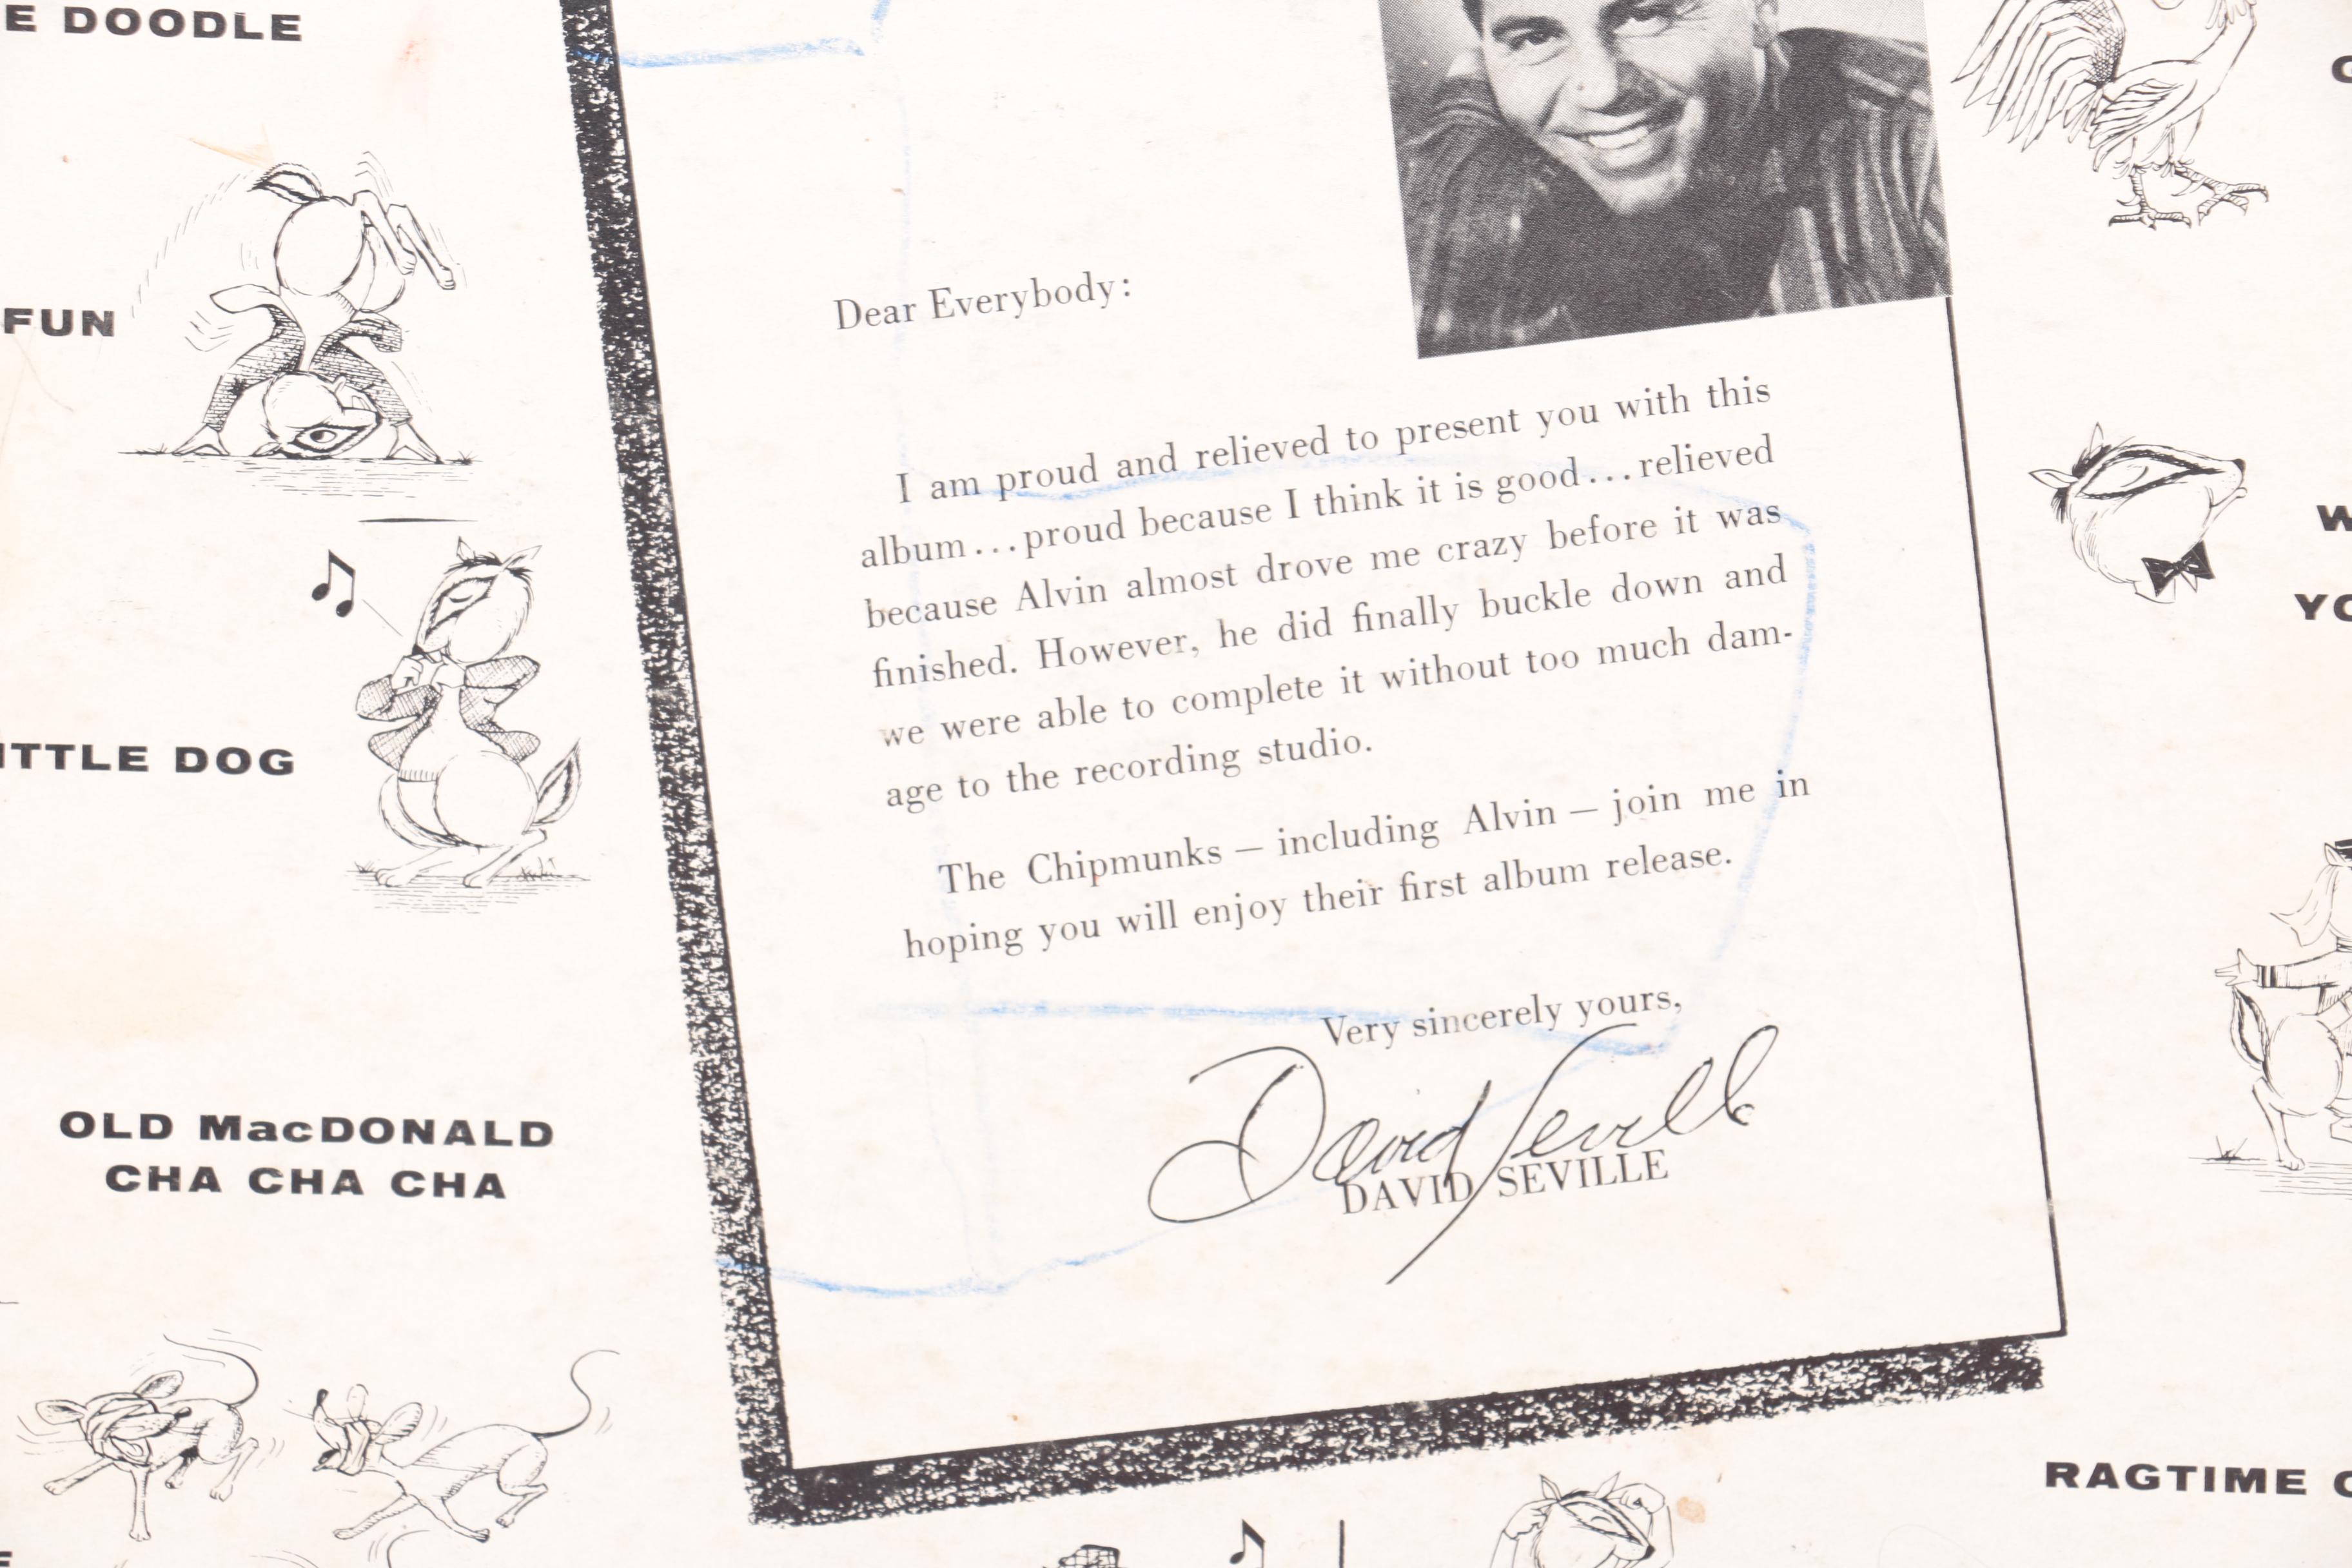 E DOODLE
FUN
ITTLE DOG
OLD MacDONALD
CHA CHA CHA
Dear Everybody:
I am proud and relieved to present you with this
album...proud because I think it is good...relieved
because Alvin almost drove me crazy before it was
finished. However, he did finally buckle down and
we were able to complete it without too much dam-
age to the recording studio.
The Chipmunks — including Alvin — join me in
hoping you will enjoy their first album release.
Very sincerely yours,
David Seville
DAVID SEVILLE
W
YO
RAGTIME C